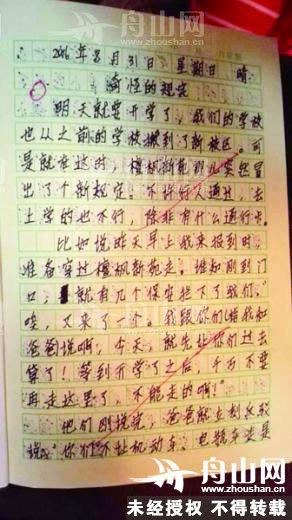 舟山网
www.zhoushan.cn
2016年8月31日 星期日 晴
奇怪的规定
明天就要开学了，我们的学校
也从之前的学校搬到了新校区。可
是就在这时，檀枫新苑那儿突然冒
出了个新规定：不许行人通过，去
上学的也不行，除非有什么通行卡。
比如说昨天早上我来报到时，
准备穿过檀枫新苑走。谁知刚到门
口，就有几个保安拦下了我们：“
唉，又来了一个。我跟你们
爸爸说啊，今天，就先让你们过去
算了！等到开学了之后，千万不要
再走这里了，不能走的啊！”
他们刚说完，爸爸就立刻反驳
说：“你们不让机动车、电瓶车这是
舟山网
www.zhoushan.cn
未经授权 不得转载